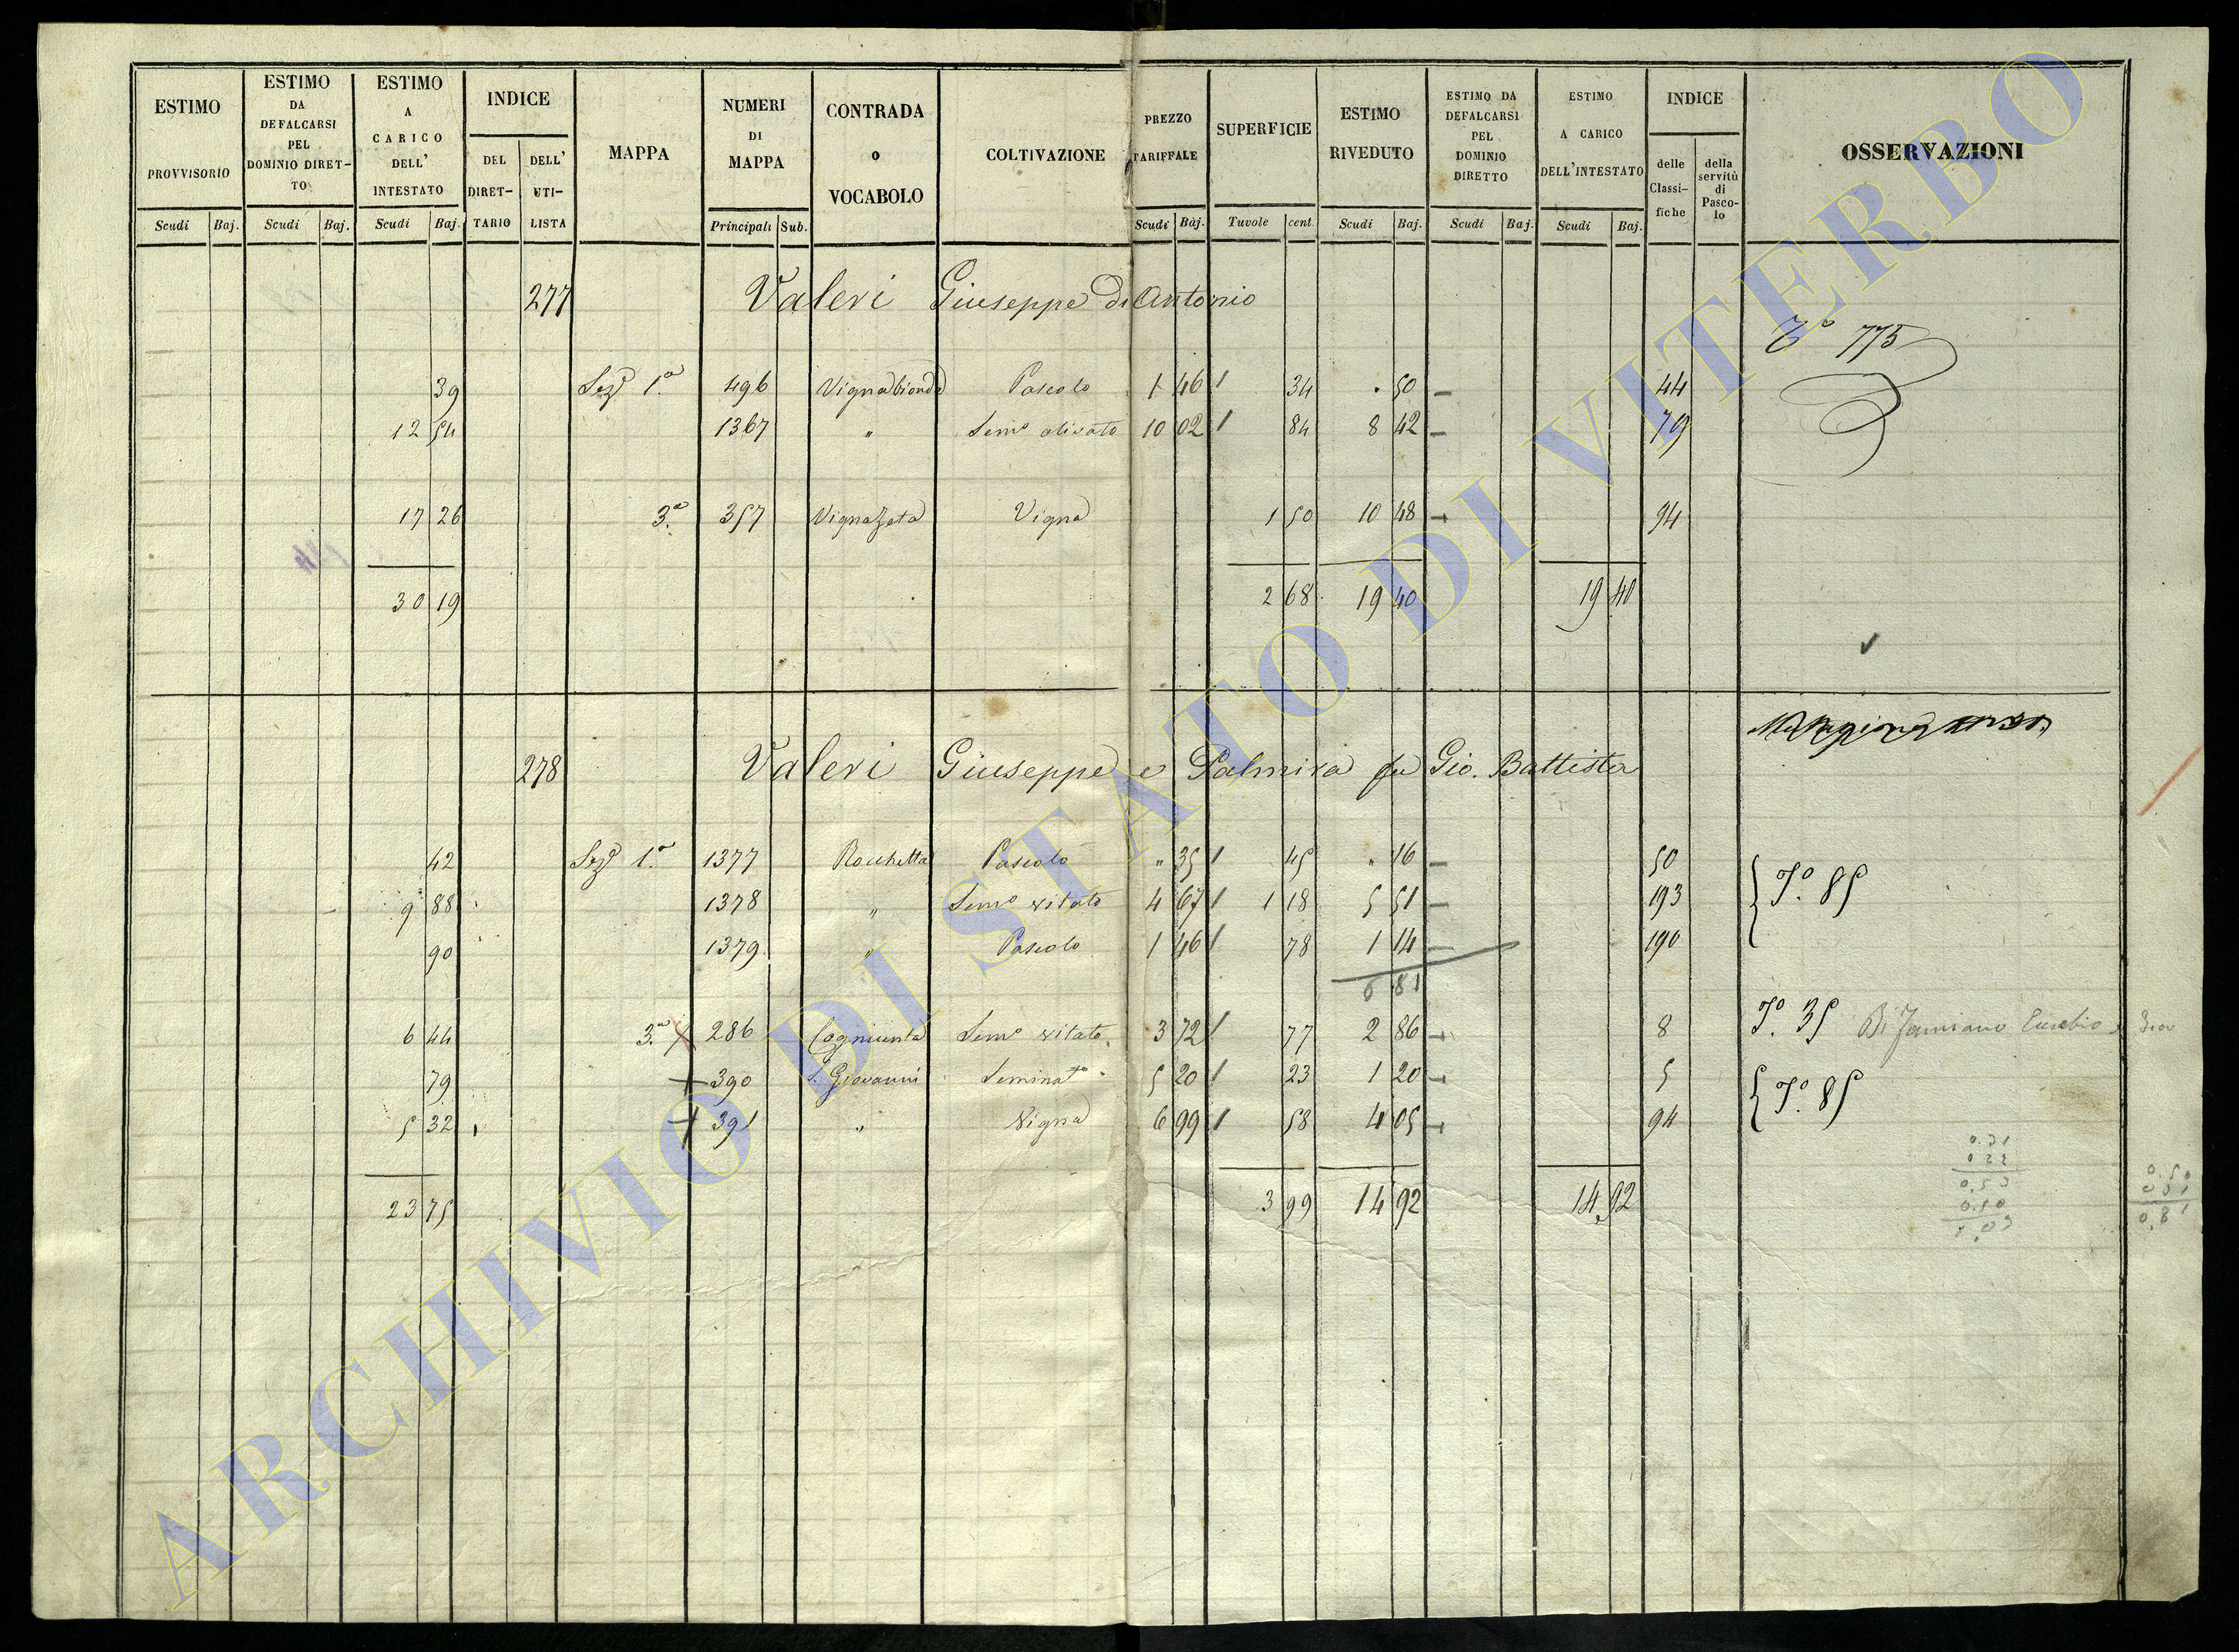 ESTIMO PROVVISORIO Scudi Baj.
ESTIMO DA DEFALCARSI PEL DOMINIO DIRET-TO Scudi Baj.
ESTIMO A CARICO DELL' INTESTATO Scudi Baj.
INDICE DEL DIRET-TARIO DELL' UTI-LISTA
MAPPA
NUMERI DI MAPPA Principali Sub.
CONTRADA o VOCABOLO
COLTIVAZIONE
PREZZO TARIFFALE Scudi Baj.
SUPERFICIE Tavole cent.
ESTIMO RIVEDUTO Scudi Baj.
ESTIMO DA DEFALCARSI PEL DOMINIO DIRETTO Scudi Baj.
ESTIMO A CARICO DELL'INTESTATO Scudi Baj.
INDICE delle Classi-fiche della servitù di Pasco-lo
OSSERVAZIONI
277 Valeri Giuseppe di Antonio
775
39 Sez.e 1.a 496 Vignabionda Pascolo 1 46 34 " 50 44
12 54 1367 " Sem.o olivato 10 02 84 8 42 79
17 26 3.a 357 Vignazata Vigna 1 50 10 48 94
30 19 2 68 19 40 19 40
278 Valeri Giuseppe e Palmira fu Gio. Battista
42 Sez.e 1.a 1377 Rocchetta Pascolo " 35 45 " 16 50
9 88 1378 " Sem.o vitato 4 67 1 18 5 51 193 T.o 85
90 1379 " Pascolo 1 46 78 1 14 190
6 81
6 44 3.a 286 Sem.o vitato 3 72 77 2 86 8 T.o 35 Eusebio
79 390 S. Giovanni Seminat.o 5 20 23 1 20 5 T.o 85
5 32 391 " Vigna 6 99 58 4 05 94
23 75 3 99 14 92 14 92
0.50
0.81
ARCHIVIO DI STATO DI VITERBO